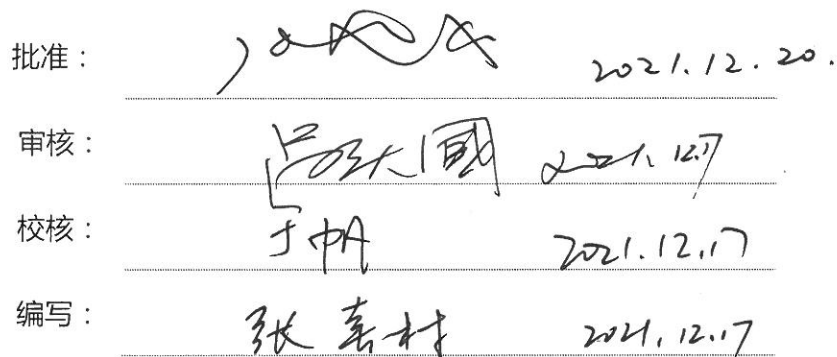 批准： 2021.12.20.
审核： 2021.12.17
校核：于帆 2021.12.17
编写：张喜村 2021.12.17